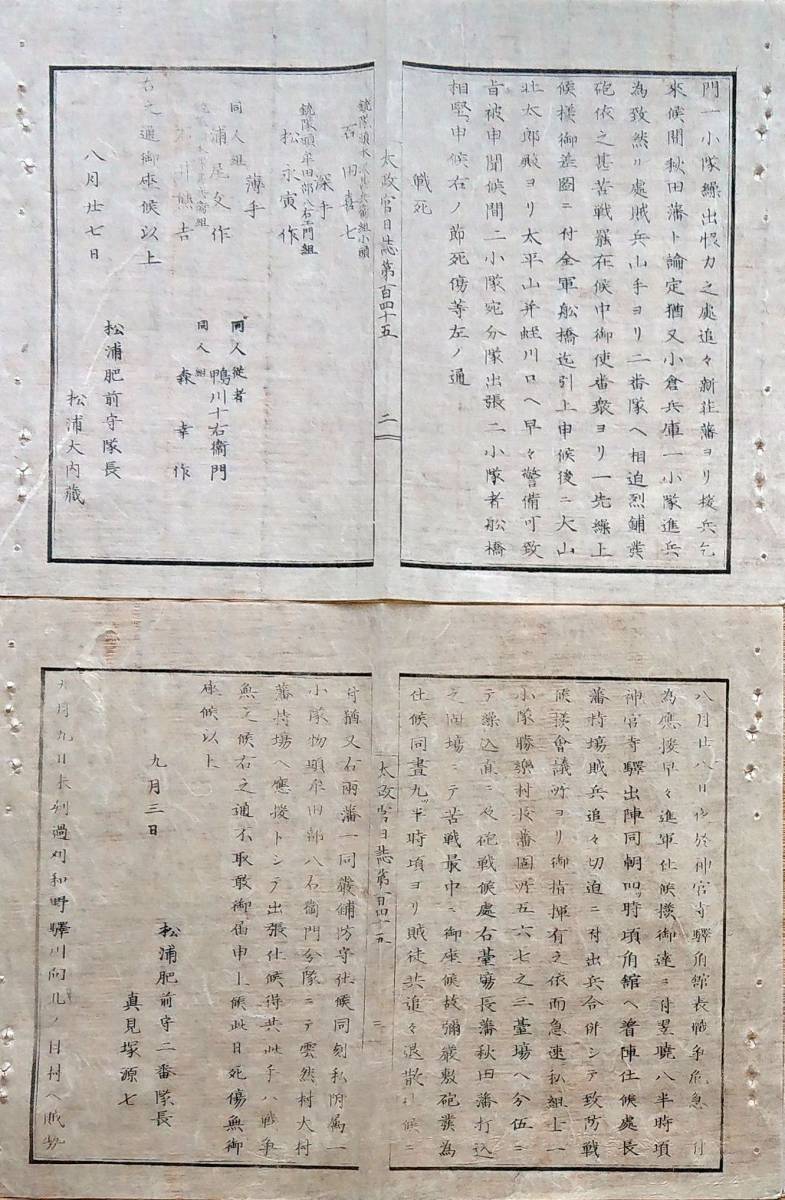 門一小隊繰出恨力之處追々新荘藩ヨリ援兵乞
來候間秋田藩ト論定猶又小倉兵庫一小隊進兵
為致然ル處賊兵山手ヨリ二番隊へ相迫烈鋪發
砲依之甚苦戦罷在候中御使番衆ヨリ一先繰上
候様御差圖ニ付全軍舩橋迄引上申候後ニ大山
壮太郎殿ヨリ太平山并蛭川口へ早々警備可致
旨被申聞候間二小隊宛分隊出張二小隊者舩橋
相堅申候右ノ節死傷等左ノ通
戦死
太政官日誌第百四十五
二
石田喜七
深手
銃隊頭牟田部八右エ門組
松永寅作
薄手
同人組
浦尾文作
井熊吉
同人従者
鴨川十右衛門
同人組
森幸作
右之通御座候以上
八月廿七日
松浦肥前守隊長
松浦大内蔵
八月廿八日夕於神官寺驛角館表戦争危急付
為應援早々進軍仕候様御達ニ付翌暁八半時頃
神宮寺驛出陣同朝四ッ時頃角館へ着陣仕候處長
藩持場賊兵追々切迫ニ付出兵合併シテ致防戦
候様會議所ヨリ御指揮有之依而急速私組士一
小隊勝樂村長藩固所五六七之三臺場へ分伍ニ
テ繰込直ニ及砲戦候處右臺場長藩秋田藩打込
之固場ニテ苦戦最中ニ御座候故彌嚴敷砲發為
仕候同晝九ッ半時頃ヨリ賊徒共追々退散仕候ニ
太政官日誌第百四十五
三
付猶又右両藩一同嚴鋪防守仕候同刻私附属一
小隊物頭牟田部八右衛門分隊ニテ雲然村大村
藩持場へ應援トシテ出張仕候得共此手ハ戦争
無之候右之通不取敢御届申上候此日死傷無御
座候以上
九月三日
松浦肥前守二番隊長
真見塚源七
九月九日未刻過刈和野驛川向北ノ目村へ賊勢